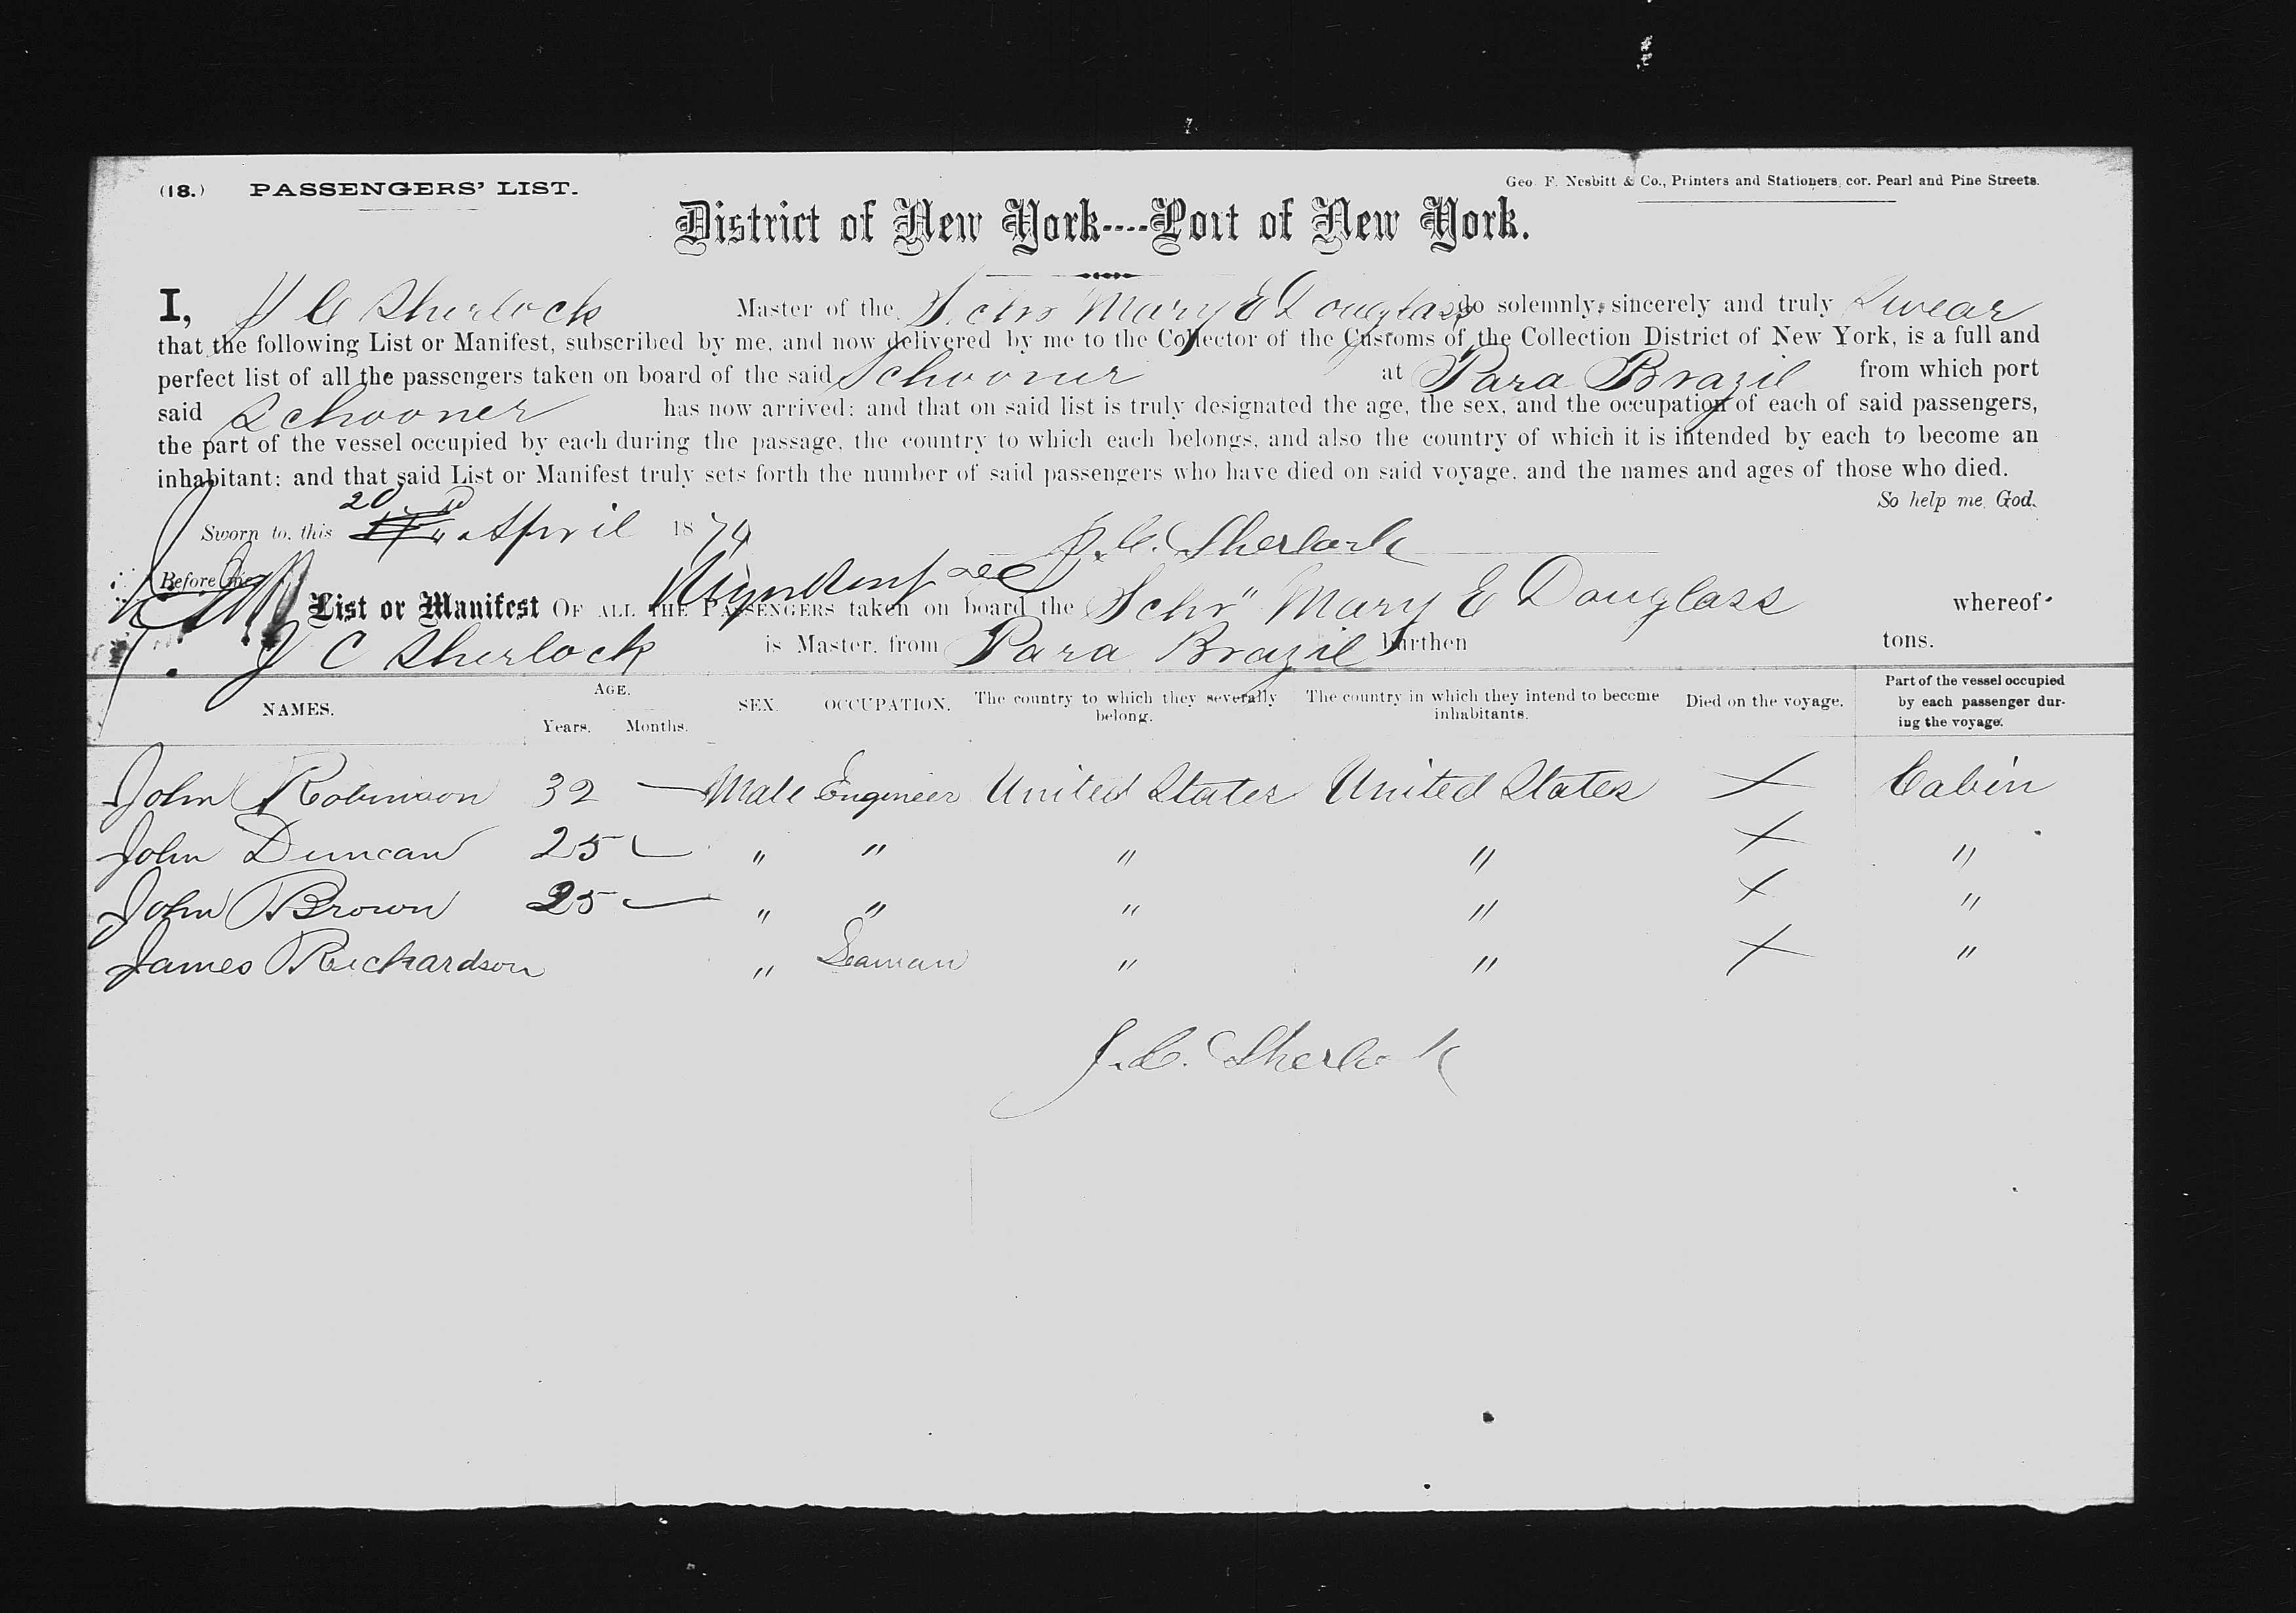 (18.) PASSENGERS' LIST. Geo F. Nesbitt & Co., Printers and Stationers, cor. Pearl and Pine Streets.
District of New York----Port of New York.
I, J C Sherlock Master of the Schr Mary E Douglass do solemnly, sincerely and truly Swear
that the following List or Manifest, subscribed by me, and now delivered by me to the Collector of the Customs of the Collection District of New York, is a full and
perfect list of all the passengers taken on board of the said Schooner at Para Brazil from which port
said Schooner has now arrived; and that on said list is truly designated the age, the sex, and the occupation of each of said passengers,
the part of the vessel occupied by each during the passage, the country to which each belongs, and also the country of which it is intended by each to become an
inhabitant; and that said List or Manifest truly sets forth the number of said passengers who have died on said voyage, and the names and ages of those who died.
So help me God.
Sworn to, this 20 April 1874 J. C. Sherlock
Before me
List or Manifest OF ALL THE PASSENGERS taken on board the Schr" Mary E Douglass whereof
J C Sherlock is Master, from Para Brazil burthen tons.
NAMES. AGE. Years. Months. SEX. OCCUPATION. The country to which they severally belong. The country in which they intend to become inhabitants. Died on the voyage. Part of the vessel occupied by each passenger during the voyage.
John Robinson 32 — Male Engineer United States United States X Cabin
John Duncan 25 — " " " " X "
John Brown 25 — " " " " X "
James Richardson " Seaman " " X "
J. C. Sherlock